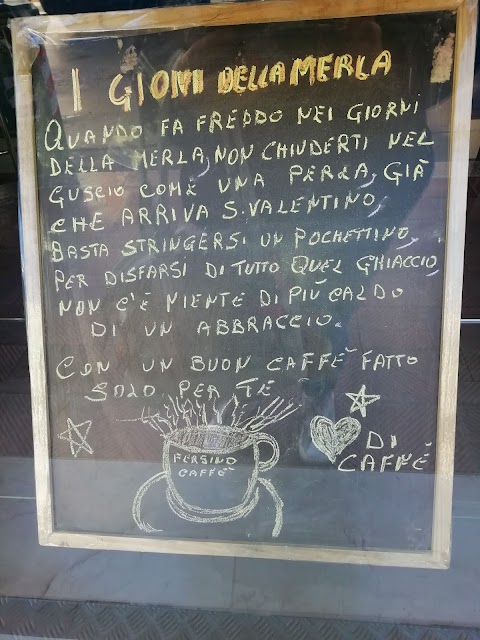 I GIONI DELLA MERLA
QUANDO FA FREDDO NEI GIORNI
DELLA MERLA, NON CHIUDERTI NEL
GUSCIO COME UNA PERLA, GIÀ
CHE ARRIVA S. VALENTINO,
BASTA STRINGERSI UN POCHETTINO,
PER DISFARSI DI TUTTO QUEL GHIACCIO,
NON C'È NIENTE DI PIÙ CALDO
DI UN ABBRACCIO.
CON UN BUON CAFFÈ FATTO
SOLO PER TE
FERSINO
CAFFÈ
DI
CAFFÈ